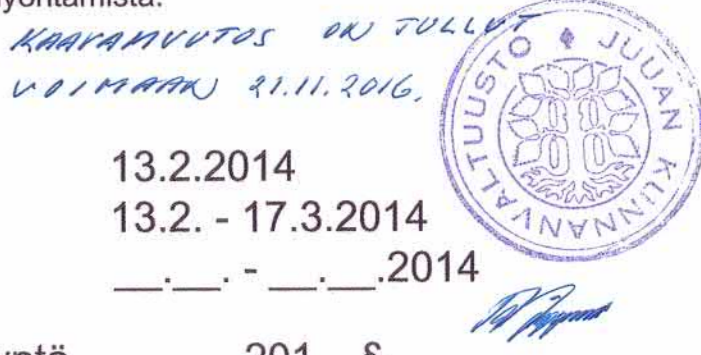 yöntämistä.
KAAVAMUUTOS ON TULLUT
VOIMAAN 21.11.2016.
JUUAN KUNNANVALTUUSTO
13.2.2014
13.2. - 17.3.2014
__.__. - __.__.2014
201 §